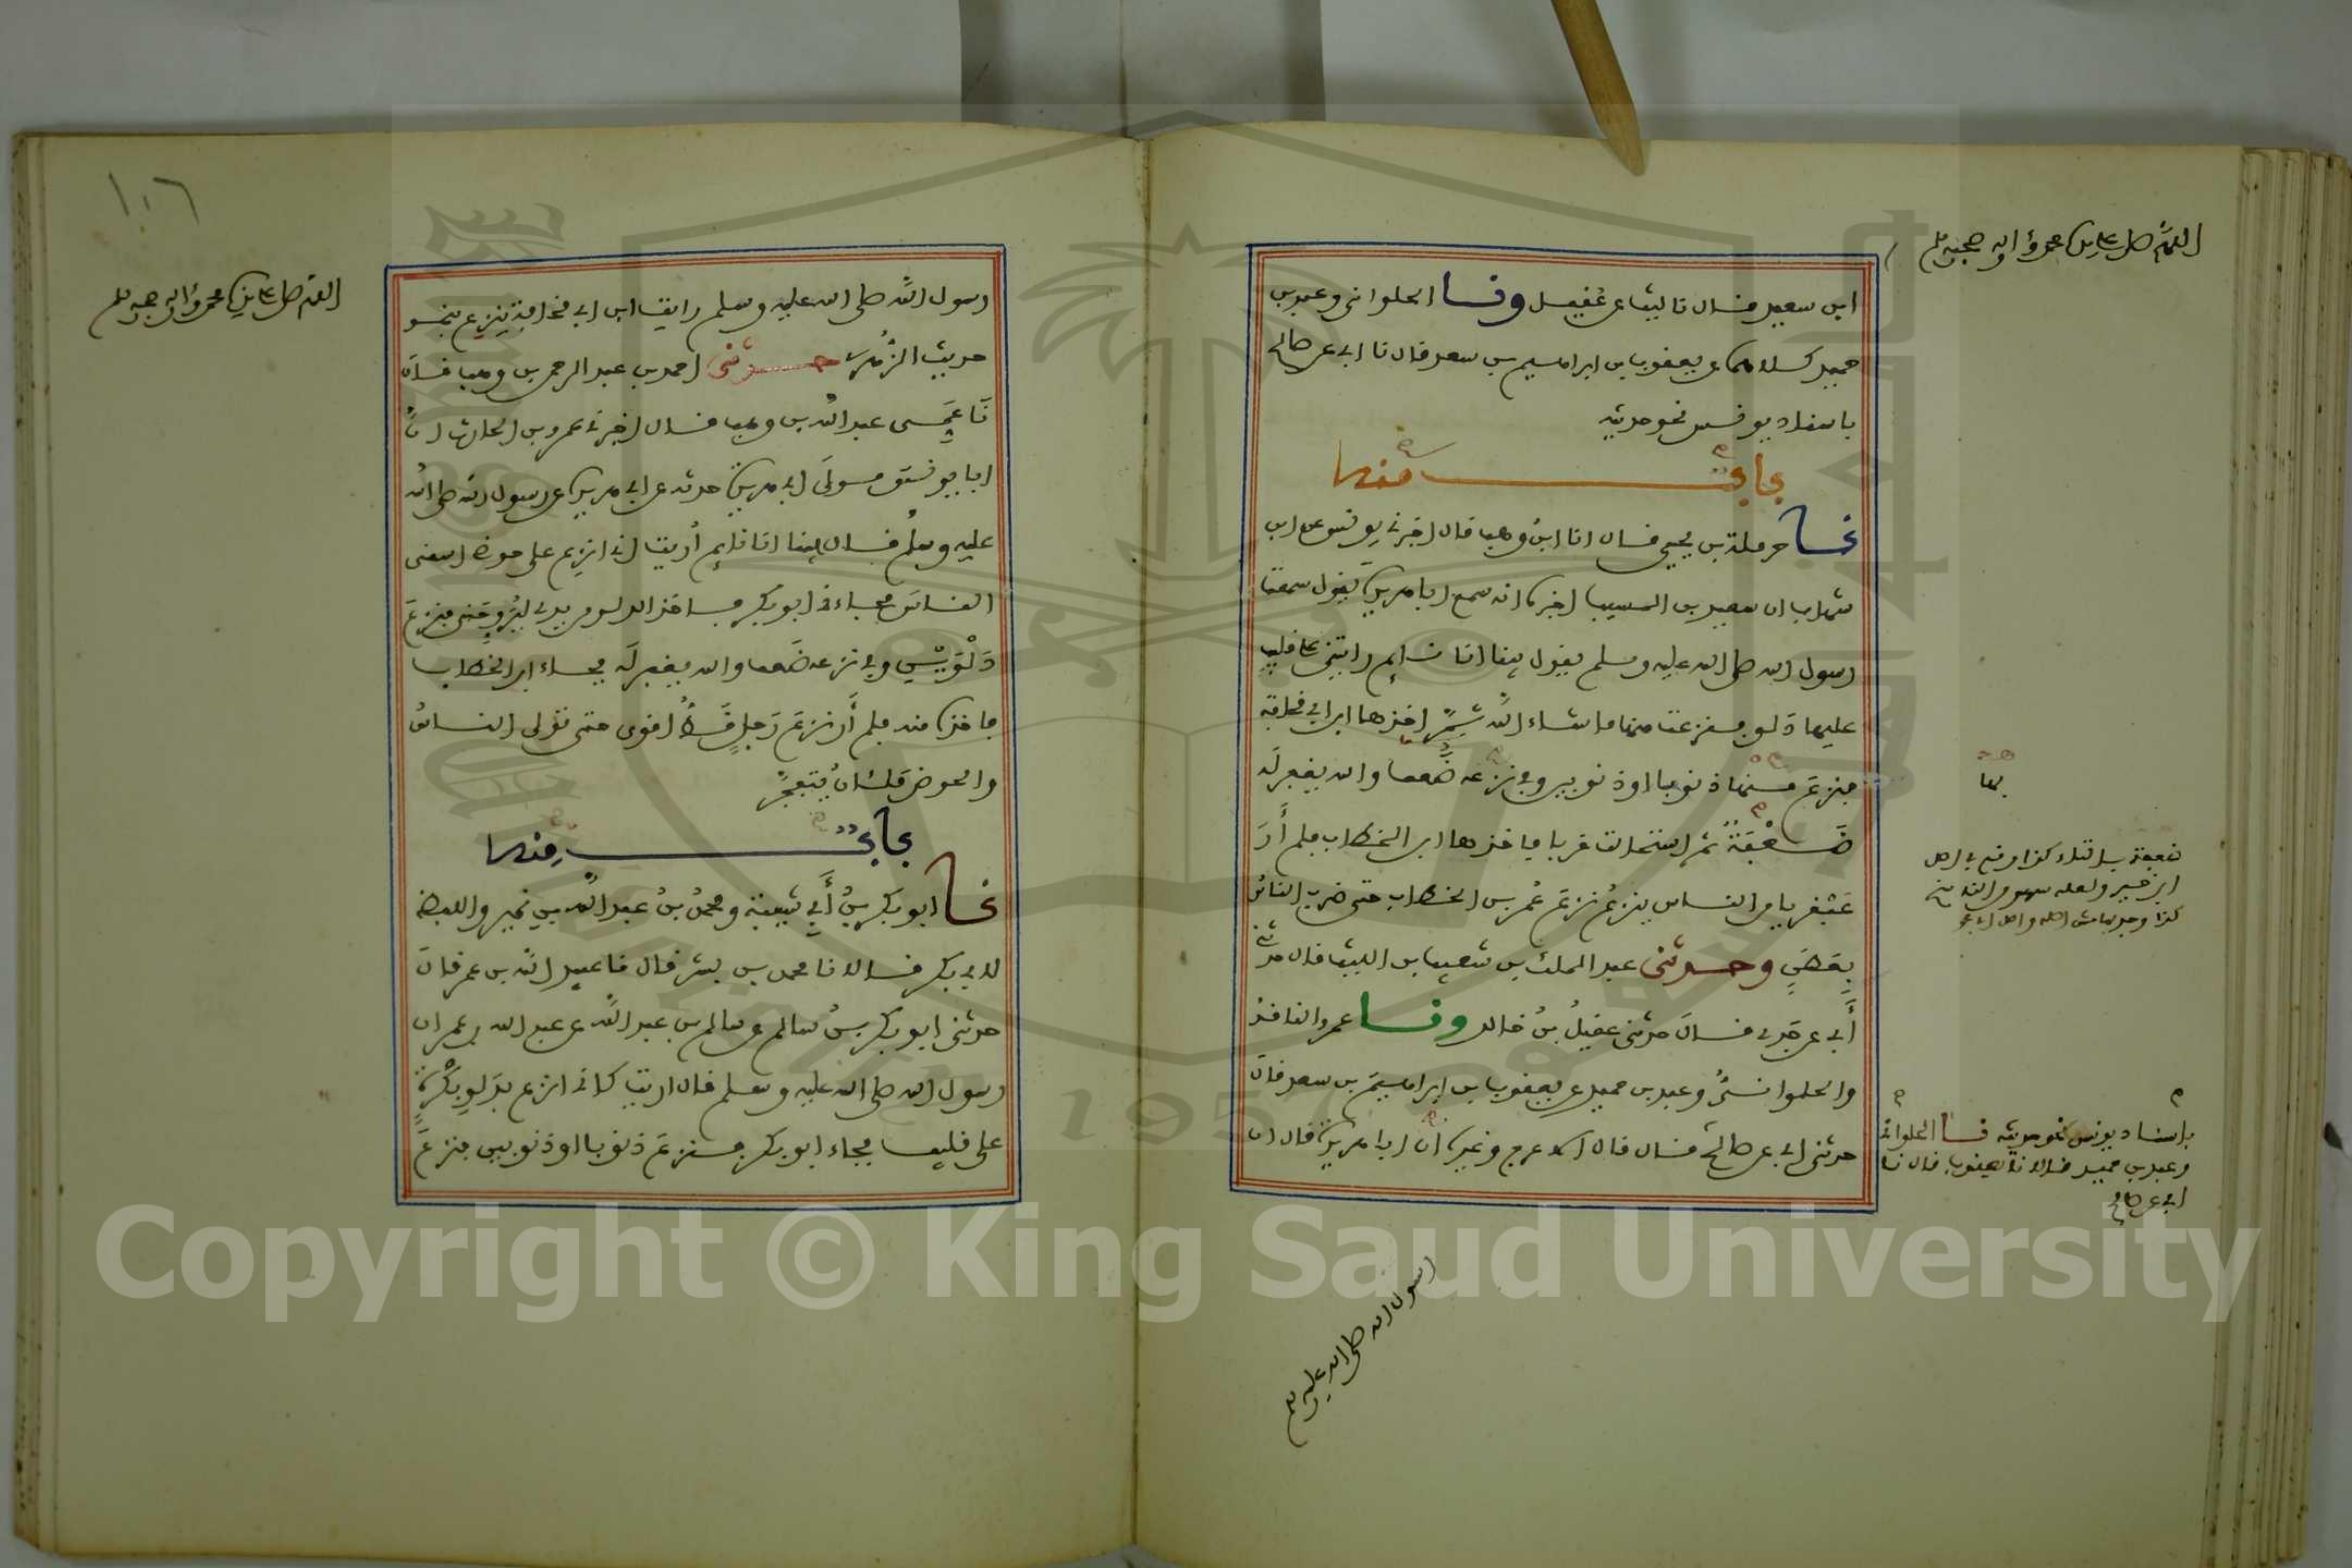 اللهم صل على سيدنا محمد وءاله وصحبه وسلم
ابن سعيد قال نا ليث عن عقيل ونا الحلواني وعبد بن
حميد كلاهما عن يعقوب بن ابراهيم بن سعد قال نا ابي عن صالح
باسناد يونس نحو حديثه
باب منها
نا حرملة بن يحيى قال انا ابن وهب قال اخبرني يونس عن ابن
شهاب ان سعيد بن المسيب اخبره انه سمع ابا هريرة يقول سمعت
رسول الله صلى الله عليه وسلم يقول بينا انا نائم رايتني على قليب
عليها دلو فنزعت منها ما شاء الله ثم اخذها ابن ابي قحافة
فنزع منها ذنوبا او ذنوبين وفي نزعه ضعف والله يغفر له
ضعفة ثم استحالت غربا فاخذها ابن الخطاب فلم أر
عبقريا من الناس ينزع نزع عمر بن الخطاب حتى ضرب الناس
بعطن وحدثني عبد الملك بن شعيب بن الليث قال حدثني
أبي عن جدي قال حدثني عقيل بن خالد ونا عمرو الناقد
والحلواني وعبد بن حميد عن يعقوب بن ابراهيم بن سعد قال
حدثني ابي عن صالح قال قال الاعرج وغيره ان ابا هريرة قال ان
لها
كذا وجد بهامش اصله
باسناد يونس نحو حديثه نا الحلواني
وعبد بن حميد قالا نا يعقوب قال نا
ابي عن صالح
رسول الله صلى الله عليه وسلم
١٠٦
اللهم صل على سيدنا محمد وءاله وصحبه وسلم
رسول الله صلى الله عليه وسلم رايت ابن ابي قحافة ينزع بنحو
حديث الزهري حدثني احمد بن عبد الرحمن بن وهب قال
نا عمي عبد الله بن وهب قال اخبرني عمرو بن الحارث ان
ابا يونس مولى ابي هريرة حدثه عن ابي هريرة عن رسول الله صلى الله
عليه وسلم قال بينا انا نائم أريت اني انزع على حوضي اسقي
الناس فجاءني ابو بكر فاخذ الدلو من يدي ليروحني فنزع
دلوين وفي نزعه ضعف والله يغفر له فجاء ابن الخطاب
فاخذه منه فلم أر نزع رجل قط اقوى حتى تولى الناس
والحوض ملئان يتفجر
باب منها
نا ابو بكر بن أبي شيبة ومحمد بن عبد الله بن نمير واللفظ
لابي بكر قالا نا محمد بن بشر قال نا عبيد الله بن عمر قال
حدثني ابو بكر بن سالم عن سالم بن عبد الله عن عبد الله بن عمر ان
رسول الله صلى الله عليه وسلم قال اريت كاني انزع بدلو بكرة
على قليب فجاء ابو بكر فنزع ذنوبا او ذنوبين فنزع